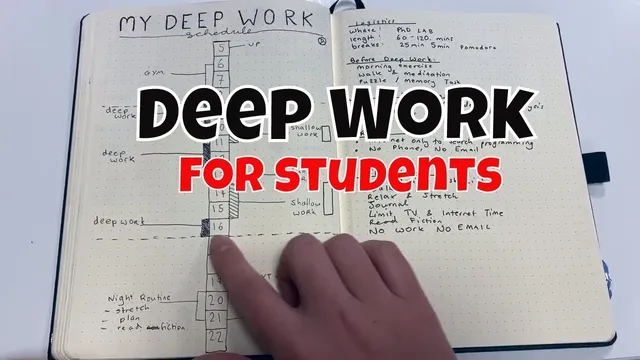 MY DEEP WORK
schedule
5
UP
6
GYM
7
deep work
deep work
shallow work
14
15
shallow work
deep work
16
17
Night Routine
- stretch
- plan
- read fiction
20
21
22
Deep Work
For Students
Logistics
where: PhD LAB
length: 60-120. mins
breaks: 25min 5min Pomodoro
Before Deep Work:
morning exercise
walk & meditation
Puzzle / Memory Task
only to search programming
No Phone, No Email
Relax & Stretch
Journal
Limit TV & Internet Time
Read Fiction
No WORK No EMAIL